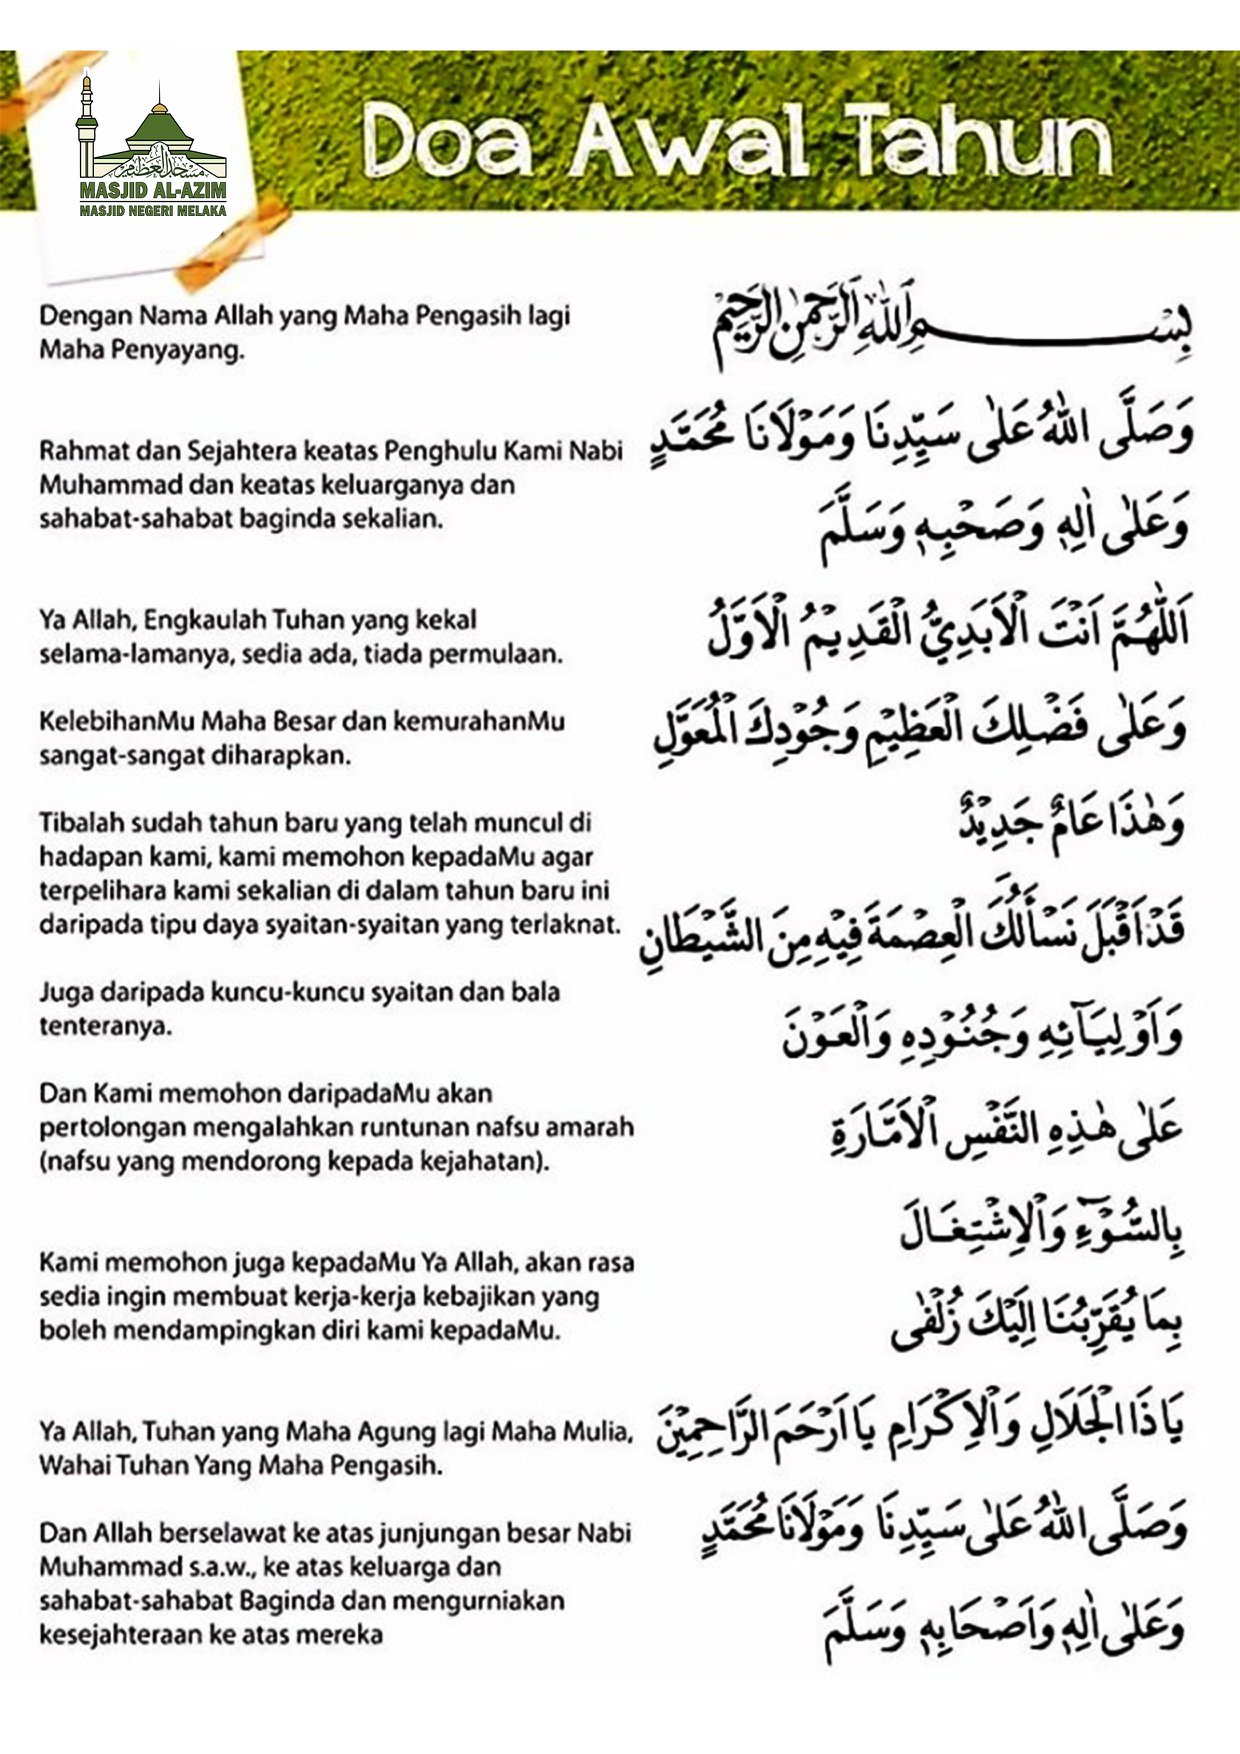 مسجد العظيم
MASJID AL-AZIM
MASJID NEGERI MELAKA
Doa Awal Tahun
Dengan Nama Allah yang Maha Pengasih lagi
Maha Penyayang.
Rahmat dan Sejahtera keatas Penghulu Kami Nabi
Muhammad dan keatas keluarganya dan
sahabat-sahabat baginda sekalian.
Ya Allah, Engkaulah Tuhan yang kekal
selama-lamanya, sedia ada, tiada permulaan.
KelebihanMu Maha Besar dan kemurahanMu
sangat-sangat diharapkan.
Tibalah sudah tahun baru yang telah muncul di
hadapan kami, kami memohon kepadaMu agar
terpelihara kami sekalian di dalam tahun baru ini
daripada tipu daya syaitan-syaitan yang terlaknat.
Juga daripada kuncu-kuncu syaitan dan bala
tenteranya.
Dan Kami memohon daripadaMu akan
pertolongan mengalahkan runtunan nafsu amarah
(nafsu yang mendorong kepada kejahatan).
Kami memohon juga kepadaMu Ya Allah, akan rasa
sedia ingin membuat kerja-kerja kebajikan yang
boleh mendampingkan diri kami kepadaMu.
Ya Allah, Tuhan yang Maha Agung lagi Maha Mulia,
Wahai Tuhan Yang Maha Pengasih.
Dan Allah berselawat ke atas junjungan besar Nabi
Muhammad s.a.w., ke atas keluarga dan
sahabat-sahabat Baginda dan mengurniakan
kesejahteraan ke atas mereka
بِسْمِ اللّٰهِ الرَّحْمٰنِ الرَّحِيْمِ
وَصَلَّى اللّٰهُ عَلٰى سَيِّدِنَا وَمَوْلَانَا مُحَمَّدٍ
وَعَلٰى اٰلِهٖ وَصَحْبِهٖ وَسَلَّمَ
اَللّٰهُمَّ اَنْتَ الْاَبَدِيُّ الْقَدِيْمُ الْاَوَّلُ
وَعَلٰى فَضْلِكَ الْعَظِيْمِ وَجُوْدِكَ الْمُعَوَّلِ
وَهٰذَا عَامٌ جَدِيْدٌ
قَدْ اَقْبَلَ نَسْأَلُكَ الْعِصْمَةَ فِيْهِ مِنَ الشَّيْطَانِ
وَاَوْلِيَآئِهِ وَجُنُوْدِهِ وَالْعَوْنَ
عَلٰى هٰذِهِ النَّفْسِ الْاَمَّارَةِ
بِالسُّوْٓءِ وَالْاِشْتِغَالَ
بِمَا يُقَرِّبُنَا اِلَيْكَ زُلْفٰى
يَا ذَا الْجَلَالِ وَالْاِكْرَامِ يَا اَرْحَمَ الرَّاحِمِيْنَ
وَصَلَّى اللّٰهُ عَلٰى سَيِّدِنَا وَمَوْلَانَا مُحَمَّدٍ
وَعَلٰى اٰلِهٖ وَاَصْحَابِهٖ وَسَلَّمَ